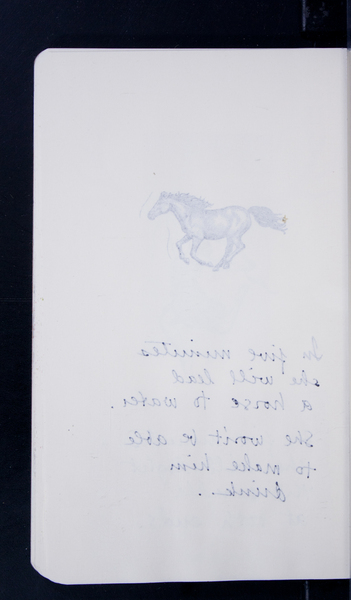 In five minutes
she will lead
a horse to water.
She won't be able
to make him
drink.